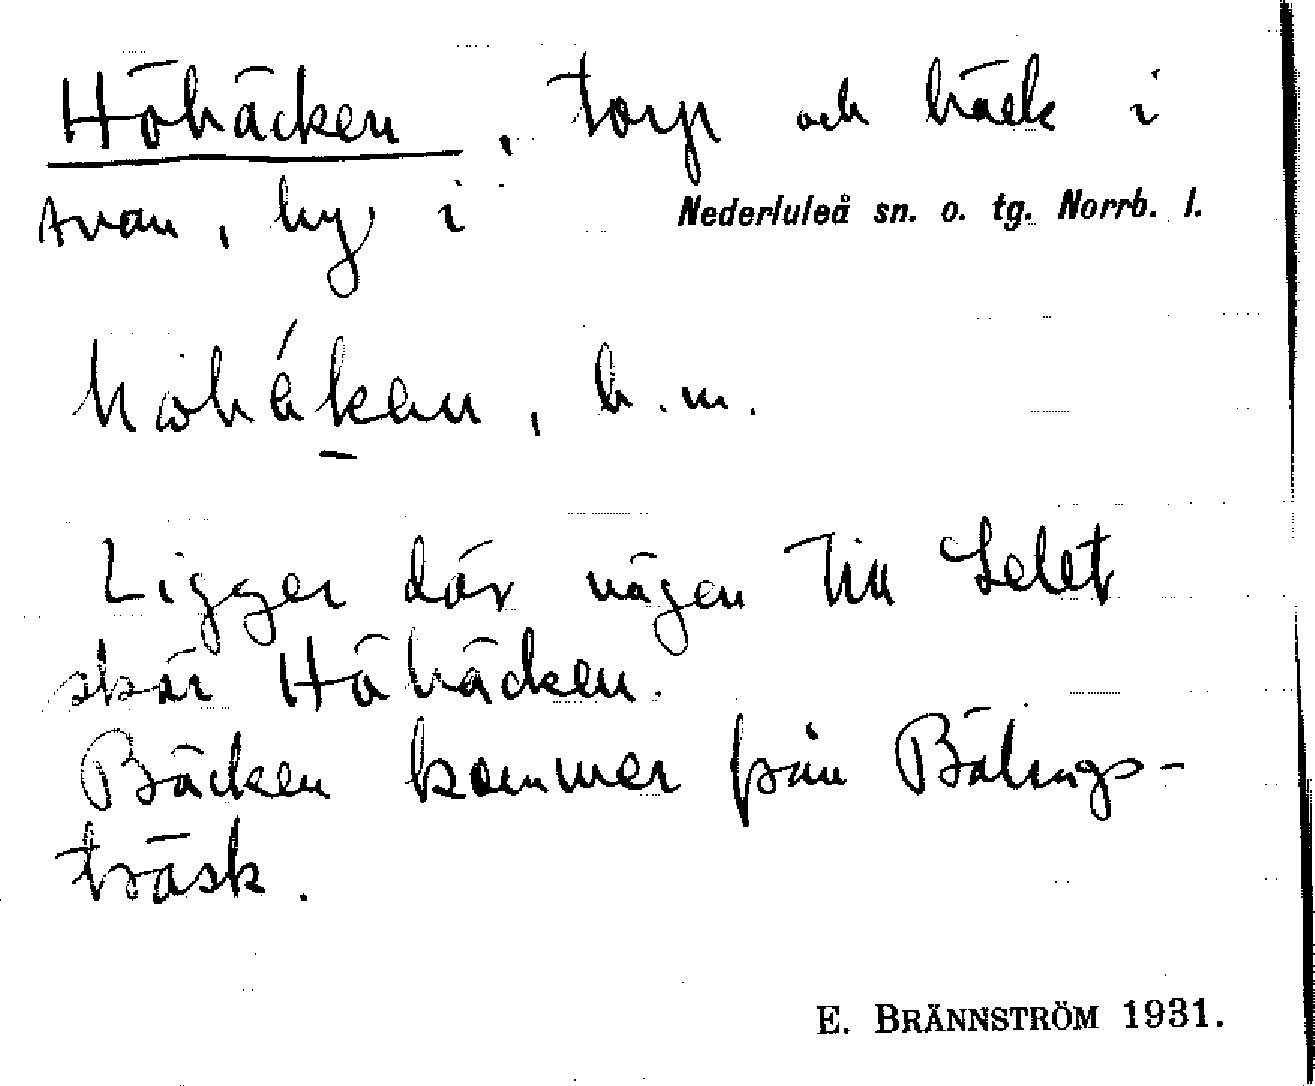 Höbäcken, torp och bäck i
Avan, by i Nederluleå sn. o. tg. Norrb. l.
b.m.
Ligger där vägen till Selet
skär Höbäcken.
Bäcken kommer från Bälings-
träsk.
E. BRÄNNSTRÖM 1931.